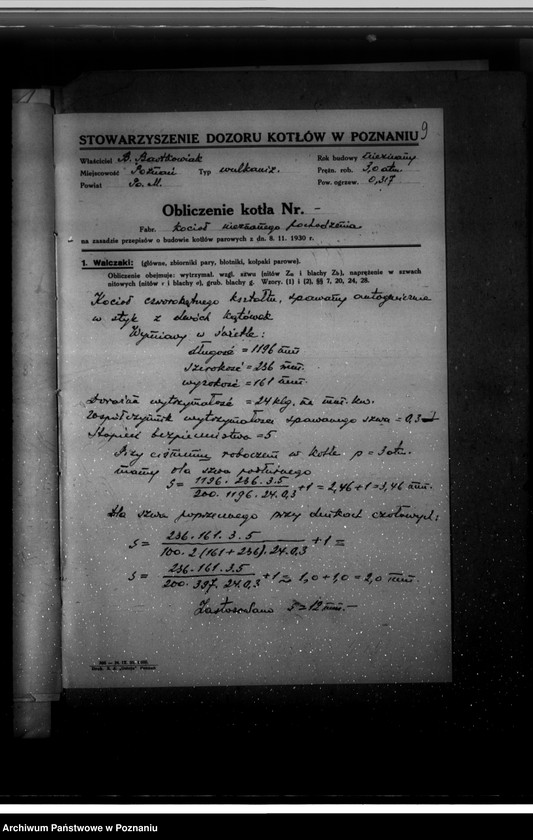 9
STOWARZYSZENIE DOZORU KOTŁÓW W POZNANIU
Właściciel B. Bartkowiak Rok budowy nieznany
Miejscowość Poznań Typ wulkaniz. Pręż. rob. 3,0 atn.
Powiat Po. M. Pow. ogrzew. 0,317
Obliczenie kotła Nr. -
Fabr. kocioł nieznanego pochodzenia
na zasadzie przepisów o budowie kotłów parowych z dn. 8. 11. 1930 r.
1. Walczaki: (główne, zbiorniki pary, błotniki, kołpaki parowe).
Obliczenie obejmuje: wytrzymał. wzgl. szwu (nitów Zn i blachy Zb), naprężenie w szwach
nitowych (nitów τ i blachy σ), grub. blachy g. Wzory. (1) i (2), §§ 7, 20, 24, 28.
Kocioł czworokątnego kształtu, spawany autogenicznie
w styk z dwóch kątówek
Wymiary w świetle:
długość = 1196 mm
szerokość = 236 mm.
wysokość = 161 mm.
Doraźna wytrzymałość = 24 klg. na mm. kw.
Współczynnik wytrzymałości spawanego szwu = 0,3
Stopień bezpieczeństwa = 5
Przy ciśnieniu roboczem w kotle p = 3 atn.
mamy dla szwu podłużnego
S = 1196 . 236 . 3.5 / 200 . 1196 . 24 . 0,3 + 1 = 2,46 + 1 = 3,46 mm.
Dla szwu poprzecznego przy denkach czołowych:
S = 236 . 161 . 3 . 5 / 100 . 2 (161 + 236) . 24 . 0,3 + 1 =
S = 236 . 161 . 3.5 / 200 . 397 . 24 . 0,3 + 1 = 1,0 + 1,0 = 2,0 mm.
Zastosowano S = 12 mm. -
Archiwum Państwowe w Poznaniu